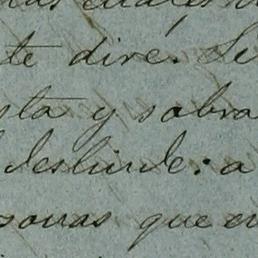 te dire. Si
sta y sobra
deslinde: a
sonas que en